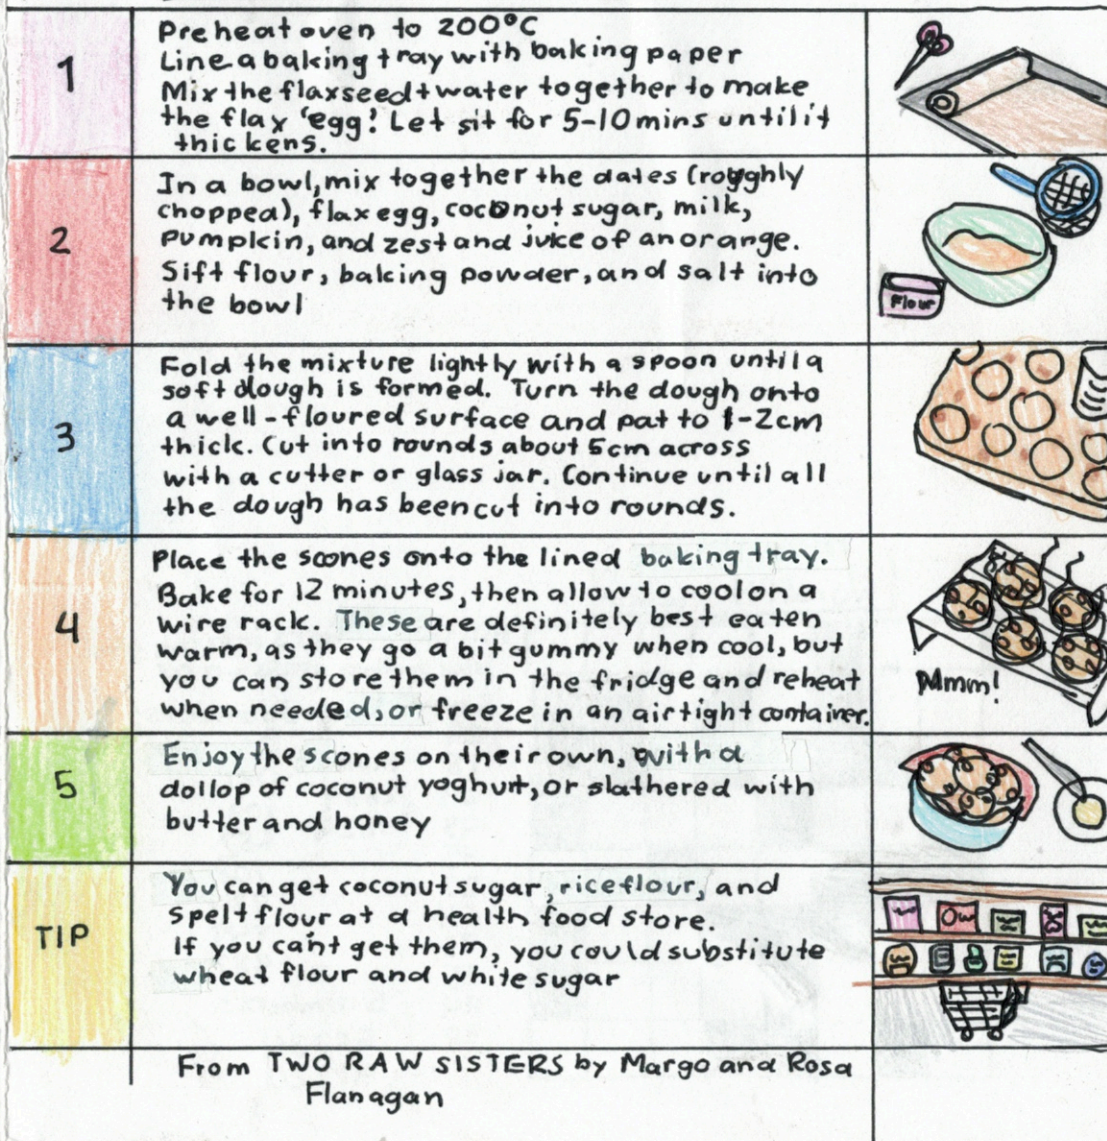 1
Preheat oven to 200°C
Line a baking tray with baking paper
Mix the flaxseed + water together to make
the flax 'egg'. Let sit for 5-10 mins until it
thickens.
2
In a bowl, mix together the dates (roughly
chopped), flax egg, coconut sugar, milk,
pumpkin, and zest and juice of an orange.
Sift flour, baking powder, and salt into
the bowl
Flour
3
Fold the mixture lightly with a spoon until a
soft dough is formed. Turn the dough onto
a well-floured surface and pat to 1-2cm
thick. Cut into rounds about 5cm across
with a cutter or glass jar. Continue until all
the dough has been cut into rounds.
4
Place the scones onto the lined baking tray.
Bake for 12 minutes, then allow to cool on a
wire rack. These are definitely best eaten
warm, as they go a bit gummy when cool, but
you can store them in the fridge and reheat
when needed, or freeze in an airtight container.
Mmm!
5
Enjoy the scones on their own, with a
dollop of coconut yoghurt, or slathered with
butter and honey
TIP
You can get coconut sugar, rice flour, and
spelt flour at a health food store.
If you can't get them, you could substitute
wheat flour and white sugar
From TWO RAW SISTERS by Margo and Rosa
Flanagan